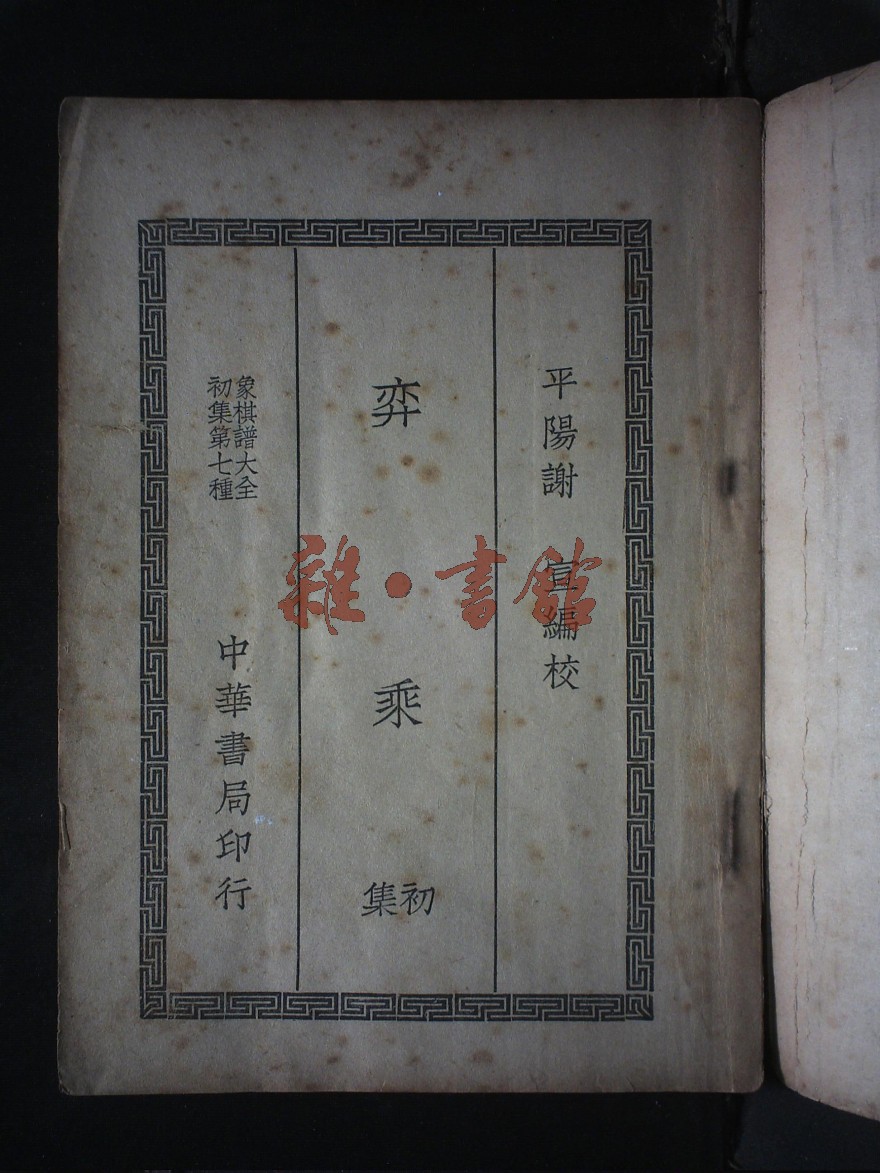 平陽謝宣編校
弈乘
初集
象棋譜大全
初集第七種
中華書局印行
雜·書館